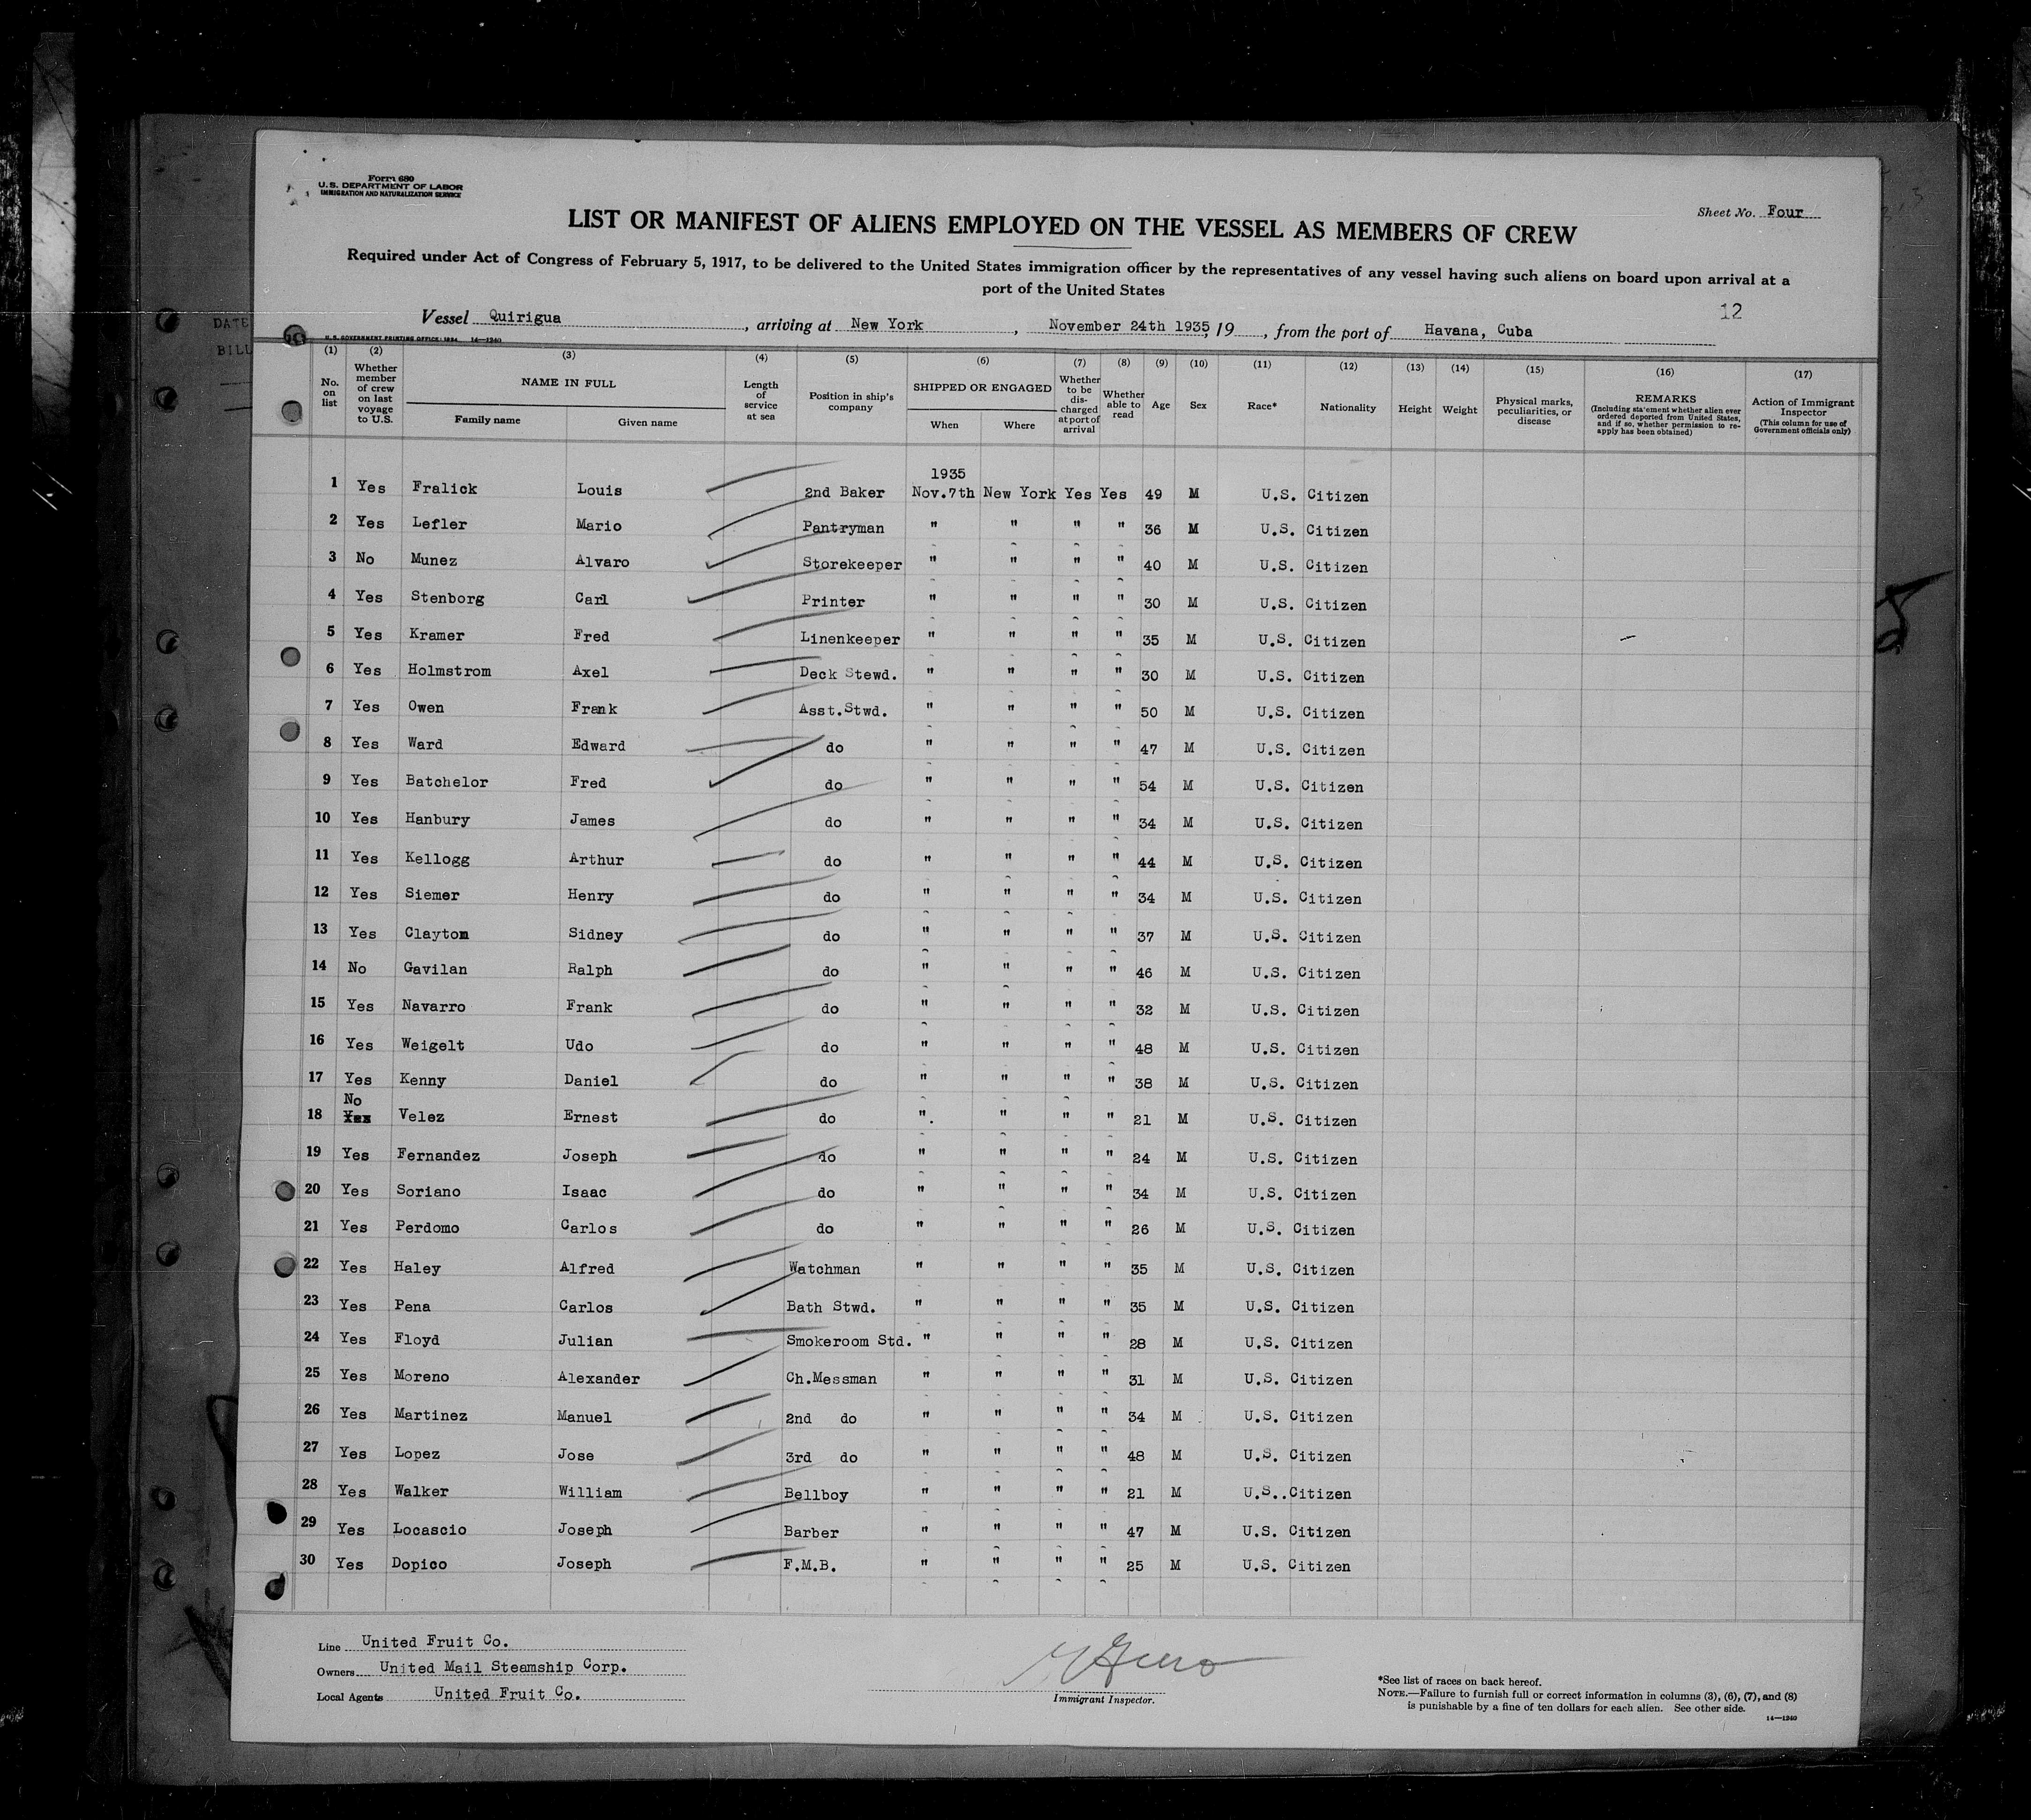 Form 680
U.S. DEPARTMENT OF LABOR
IMMIGRATION AND NATURALIZATION SERVICE
Sheet No. Four
LIST OR MANIFEST OF ALIENS EMPLOYED ON THE VESSEL AS MEMBERS OF CREW
Required under Act of Congress of February 5, 1917, to be delivered to the United States immigration officer by the representatives of any vessel having such aliens on board upon arrival at a
port of the United States
12
Vessel Quirigua, arriving at New York, November 24th 1935, 19, from the port of Havana, Cuba
DATE
BILL
U.S. GOVERNMENT PRINTING OFFICE: 1934 14—1240
(1) (2) (3) (4) (5) (6) (7) (8) (9) (10) (11) (12) (13) (14) (15) (16) (17)
No. on list
Whether member of crew on last voyage to U.S.
NAME IN FULL
Family name
Given name
Length of service at sea
Position in ship's company
SHIPPED OR ENGAGED
When
Where
Whether to be discharged at port of arrival
Whether able to read
Age
Sex
Race*
Nationality
Height
Weight
Physical marks, peculiarities, or disease
REMARKS
(Including statement whether alien ever ordered deported from United States, and if so, whether permission to re-apply has been obtained)
Action of Immigrant Inspector
(This column for use of Government officials only)
1935
1 Yes Fralick Louis 2nd Baker Nov.7th New York Yes Yes 49 M U.S. Citizen
2 Yes Lefler Mario Pantryman " " " " 36 M U.S. Citizen
3 No Munez Alvaro Storekeeper " " " " 40 M U.S. Citizen
4 Yes Stenborg Carl Printer " " " " 30 M U.S. Citizen
5 Yes Kramer Fred Linenkeeper " " " " 35 M U.S. Citizen
6 Yes Holmstrom Axel Deck Stewd. " " " " 30 M U.S. Citizen
7 Yes Owen Frank Asst.Stwd. " " " " 50 M U.S. Citizen
8 Yes Ward Edward do " " " " 47 M U.S. Citizen
9 Yes Batchelor Fred do " " " " 54 M U.S. Citizen
10 Yes Hanbury James do " " " " 34 M U.S. Citizen
11 Yes Kellogg Arthur do " " " " 44 M U.S. Citizen
12 Yes Siemer Henry do " " " " 34 M U.S. Citizen
13 Yes Clayton Sidney do " " " " 37 M U.S. Citizen
14 No Gavilan Ralph do " " " " 46 M U.S. Citizen
15 Yes Navarro Frank do " " " " 32 M U.S. Citizen
16 Yes Weigelt Udo do " " " " 48 M U.S. Citizen
17 Yes Kenny Daniel do " " " " 38 M U.S. Citizen
No
18 Yes Velez Ernest do " " " " 21 M U.S. Citizen
19 Yes Fernandez Joseph do " " " " 24 M U.S. Citizen
20 Yes Soriano Isaac do " " " " 34 M U.S. Citizen
21 Yes Perdomo Carlos do " " " " 26 M U.S. Citizen
22 Yes Haley Alfred Watchman " " " " 35 M U.S. Citizen
23 Yes Pena Carlos Bath Stwd. " " " " 35 M U.S. Citizen
24 Yes Floyd Julian Smokeroom Std. " " " " 28 M U.S. Citizen
25 Yes Moreno Alexander Ch.Messman " " " " 31 M U.S. Citizen
26 Yes Martinez Manuel 2nd do " " " " 34 M U.S. Citizen
27 Yes Lopez Jose 3rd do " " " " 48 M U.S. Citizen
28 Yes Walker William Bellboy " " " " 21 M U.S..Citizen
29 Yes Locascio Joseph Barber " " " " 47 M U.S. Citizen
30 Yes Dopico Joseph F.M.B. " " " " 25 M U.S. Citizen
Line United Fruit Co.
Owners United Mail Steamship Corp.
Local Agents United Fruit Co.
Immigrant Inspector.
*See list of races on back hereof.
NOTE.—Failure to furnish full or correct information in columns (3), (6), (7), and (8)
is punishable by a fine of ten dollars for each alien. See other side.
14—1240